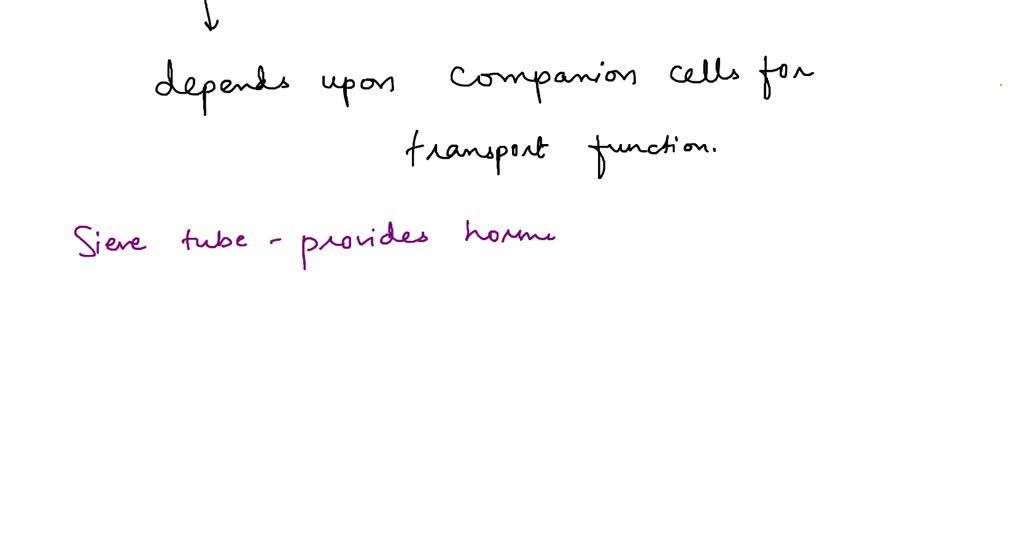 depends upon companion cells for
transport function.
Sieve tube - provides horm